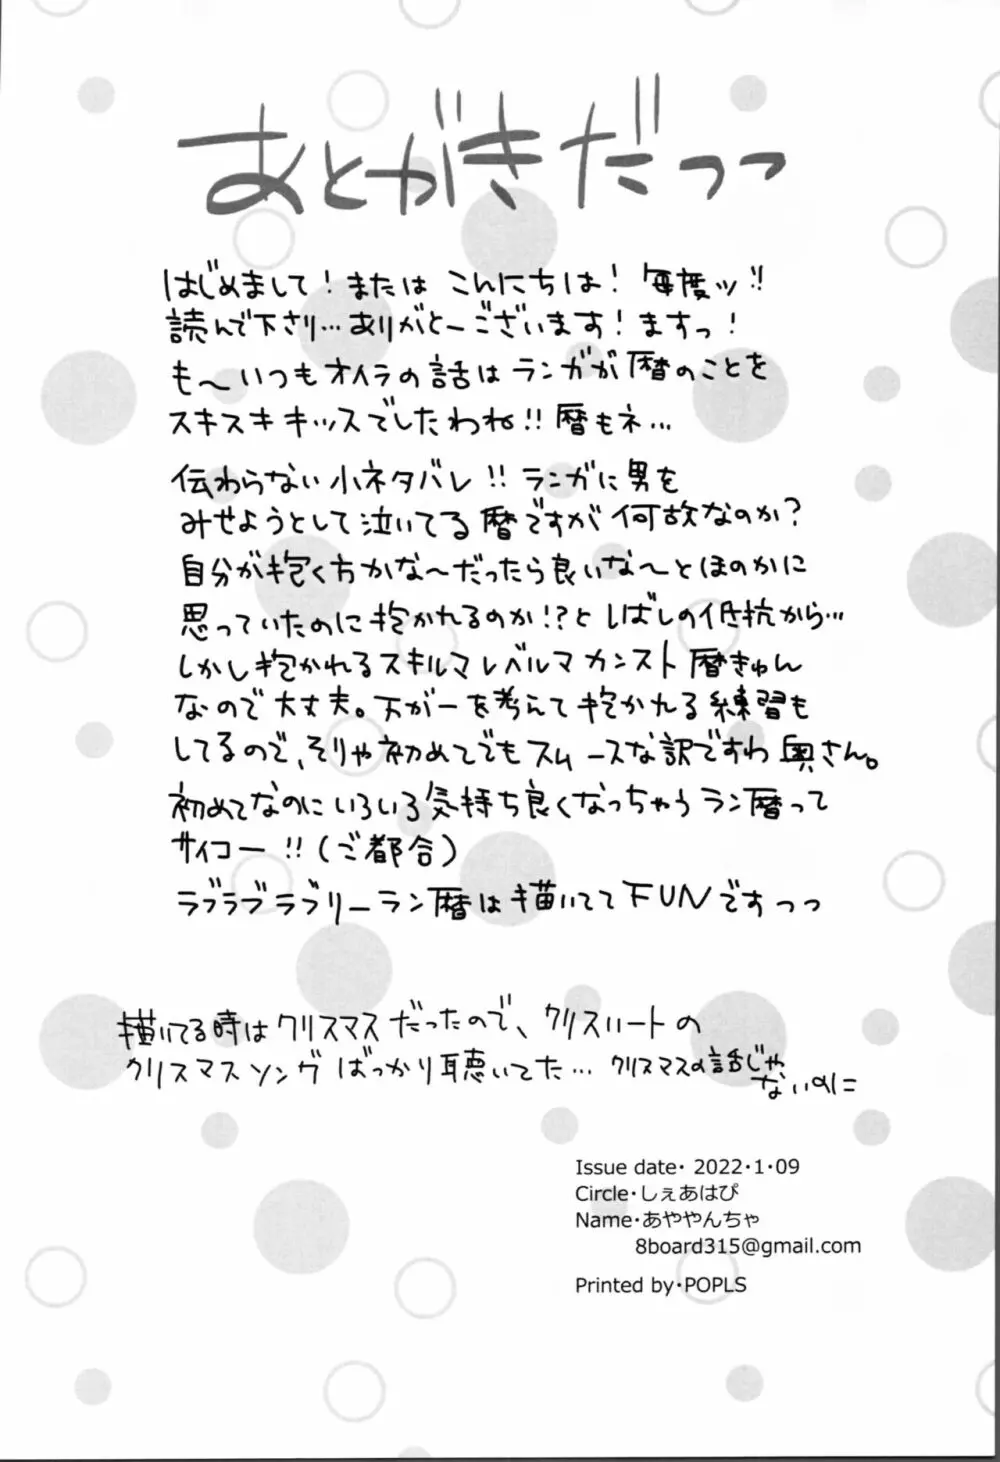 あとがきだっっ
はじめまして!またはこんにちは!毎度ッ!!
読んで下さり…ありがとーございます!ますっ!
も〜いつもオイラの話はランガが暦のことを
スキスキキッスでしたわね!!暦もネ…
伝わらない小ネタバレ!!ランガに男を
みせようとして泣いてる暦ですが何故なのか?
自分が抱く方かな〜だったら良いな〜とほのかに
思っていたのに抱かれるのか!?としばしの抵抗から…
しかし抱かれるスキルマレベルマカンスト暦きゅん
なので大丈夫。万が一を考えて抱かれる練習も
してるので、そりゃ初めてでもスムースな訳ですわ奥さん。
初めてなのにいろいろ気持ち良くなっちゃうラン暦って
サイコー!!(ご都合)
ラブラブラブリーラン暦は描いててFUNですっっ
描いてる時はクリスマスだったので、クリスハートの
クリスマスソングばっかり聴いてた…クリスマスの話じゃ
ないのに
Issue date・2022・1・09
Circle・しぇあはぴ
Name・あややんちゃ
8board315@gmail.com
Printed by・POPLS